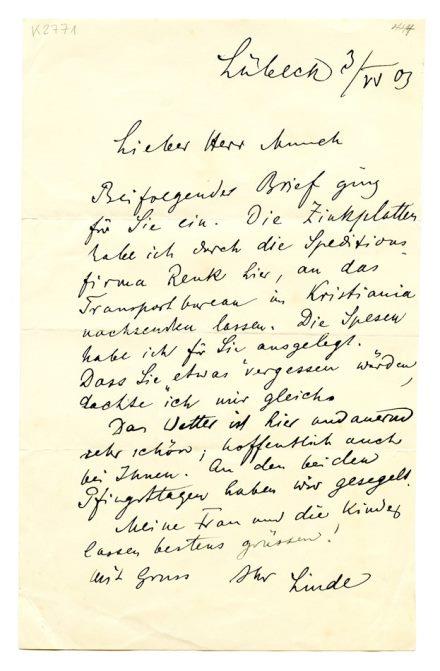 K2771
Lübeck 3/VI 03
Lieber Herr Munch
Beifolgender Brief ging
für Sie ein. Die Zinkplatten
habe ich durch die Speditions-
firma Renk hier, an das
Transportbureau in Kristiania
nachsenden lassen. Die Spesen
habe ich für Sie ausgelegt.
Dass Sie etwas vergessen würden,
dachte ich mir gleich.
Das Wetter ist hier andauernd
sehr schön; hoffentlich auch
bei Ihnen. An den beiden
Pfingsttagen haben wir gesegelt.
Meine Frau und die Kinder
lassen bestens grüssen!
Mit Gruss Ihr Linde